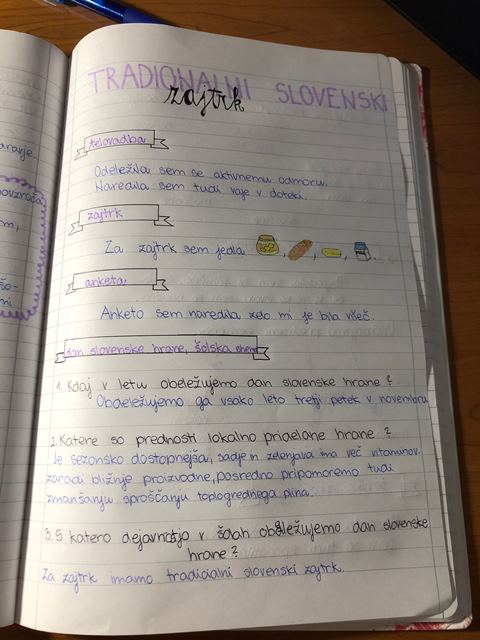 TRADIONALNI SLOVENSKI
zajtrk
telovadba
Odeležila sem se aktivnemu odmoru.
Naredila sem tudi vaje v doteki.
zajtrk
Za zajtrk sem jedla , , , .
anketa
Anketo sem naredila, zelo mi je bila všeč.
dan slovenske hrane, šolska shema
1. Kdaj v letu obeležujemo dan slovenske hrane?
Obdeležujemo ga vsako leto tretji petek v novembru
2. Katere so prednosti lokalno pridelane hrane?
Je sezonsko dostopnejša, sadje in zelenjava ima več vitaminov.
zaradi bližnje proizvodne, posredno pripomoremo tudi
zmanšanju sproščanju toplogrednega plina.
3. S katero dejavnostjo v šolah obeležujemo dan slovenske
hrane?
Za zajtrk imamo tradicialni slovenski zajtrk.
aranje.
povzroča
m,
šo-
mi